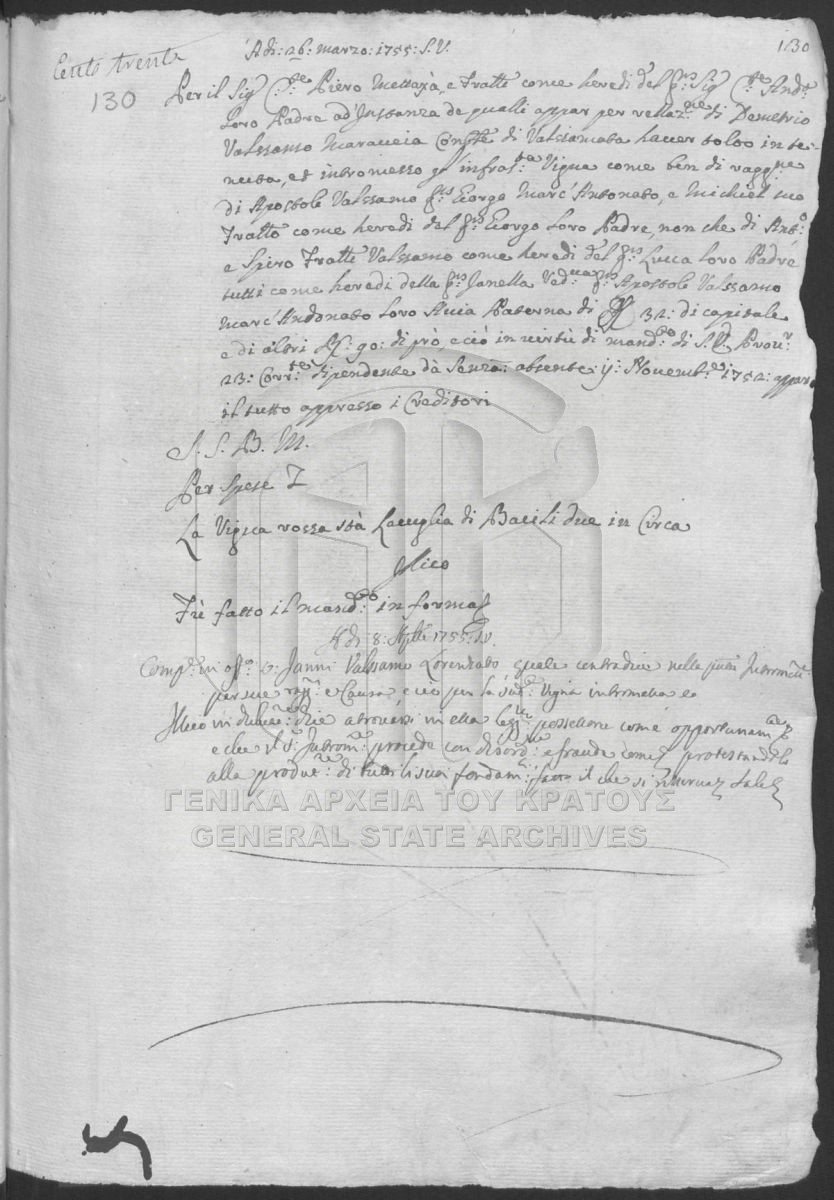 Cento trenta
130
130
Adi: 26: marzo: 1755: S.V.
Per il Sig: Cte Piero Mettaxà, e Fratti come heredi del qm Sig: Cte Andr:
Loro Padre ad Instanza de qualli appar per rellaz:ne di Demetrio
Valssamo Maraveia Conte di Valssamata haver tolto in te-
nuta, et intromesso gl' infras:ta Vigna come ben di ragg:ne
di Apostolo Valssamo qm Zorgo Marc'Antonato, e Michiel suo
Fratto come heredi del qm Zorgo Loro Padre, non che di Ant:o
e Spiro Fratti Valssamo come heredi del qm Lucca Loro Padre
tutti come heredi della qm Janella Ved:a qm Apostolo Valssamo
Marc'Andonato Loro Avia Paterna di 32: di capitale
e di altri 90: di prò, e ciò in virtù di mand:to di S.E. Prov:r
23: Corr:te dipendente dà Senza: absente 11: Novemb:e 1752: appar
il tutto appresso i Creditori
S. S. B. M.
Per Spese
La Vigna rossa stà Laciglia di Bacili due in Circa
Illico
Fù fatto il mand:to in forma
Adi: 8: Aplle 1755: S.V.
Comp:e in off:o Janni Valssamo Lorenzato, quale contradice nella Intromis:
per sue rag:ni e Cause e ciò per la sud:ta Vigna intromessa
Illico in die atrovarsi in essa possessione come opportunam:te
e che il Intromi: procede con disord: e fraude come protestando
alla produt:ne di tutti li suoi fondam:ti sopra il che si riserva
ΓΕΝΙΚΑ ΑΡΧΕΙΑ ΤΟΥ ΚΡΑΤΟΥΣ
GENERAL STATE ARCHIVES